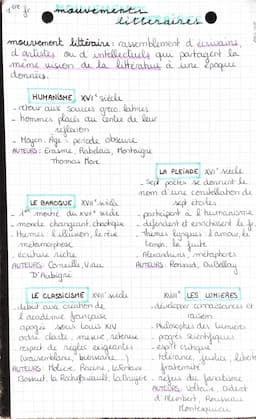 1ère fr
mouvements
littéraires
mouvement littéraire : rassemblement d'écrivains,
d'artistes ou d'intellectuels qui partagent la
même vision de la littérature à une époque
donnée.
HUMANISME XVIe siècle
- retour aux sources gréco-latines
- hommes placés au centre de leur
réflexion
- Moyen-Âge : période obscure
AUTEURS : Erasme, Rabelais, Montaigne
Thomas More
LA PLEÏADE XVIe siècle
- sept poètes se donnent le
nom d'une constellation de
sept étoiles
- participent à l'humanisme
- défendent et enrichissent le fr
- thèmes lyriques : l'amour, le
temps, la fuite
- Alexandrins, métaphores
AUTEURS : Ronsard, Du Bellay
LE BAROQUE XVIIe siècle
- 1ère moitié du XVIIe siècle
- monde changeant, chaotique
- thèmes : l'illusion, le rêve
métamorphose
- écriture riche
AUTEURS : Corneille, Viau
D'Aubigné
LE CLASSICISME XVIIe siècle
- début aux création de
l'académie française
- apogée sous Louis XIV
- ordre, clarté, mesure, retenue
- respect de règles exigeantes
(vraisemblance, bienséance...)
AUTEURS : Molière, Racine, La Fontaine
Bossuet, La Rochefoucault, La Bruyère
XVIIIe LES LUMIERES
- développer connaissances et
raison
- Philosophes des Lumières
- progrès scientifiques
- esprit critique
- tolérance, justice, liberté
fraternité
- refus du fanatisme
AUTEURS : Voltaire, Diderot
d'Alembert, Rousseau
Montesquieu